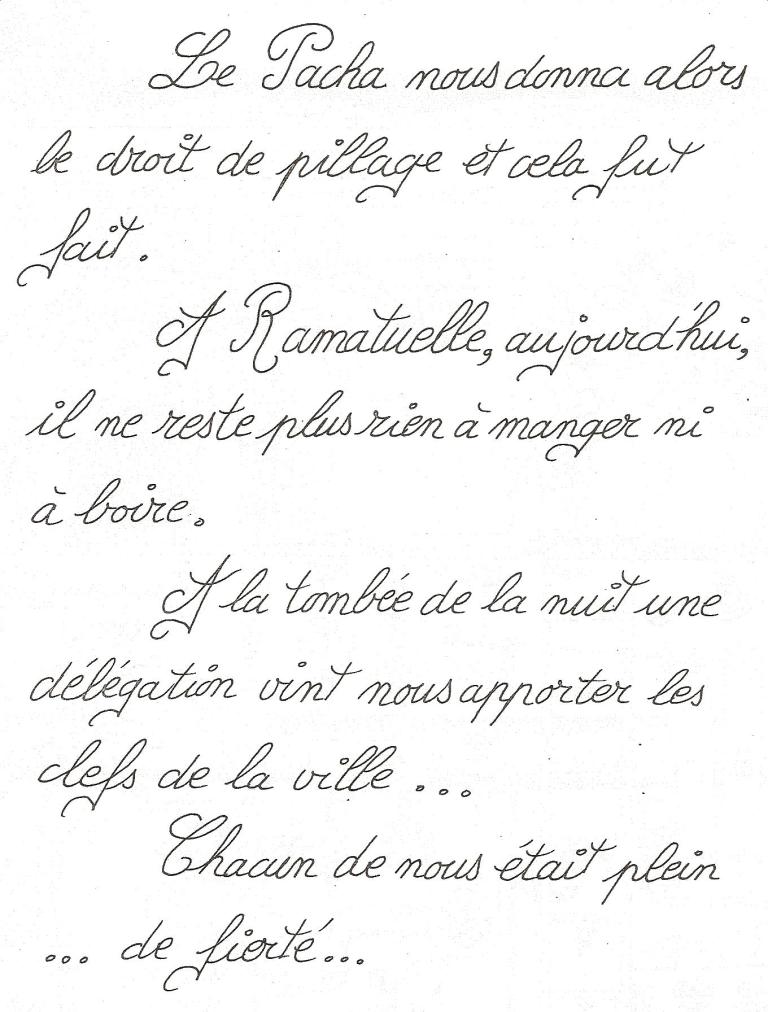 Le Pacha nous donna alors
le droit de pillage et cela fut
fait.
A Ramatuelle, aujourd'hui,
il ne reste plus rien à manger ni
à boire.
A la tombée de la nuit une
délégation vint nous apporter les
clefs de la ville ...
Chacun de nous était plein
... de fierté...